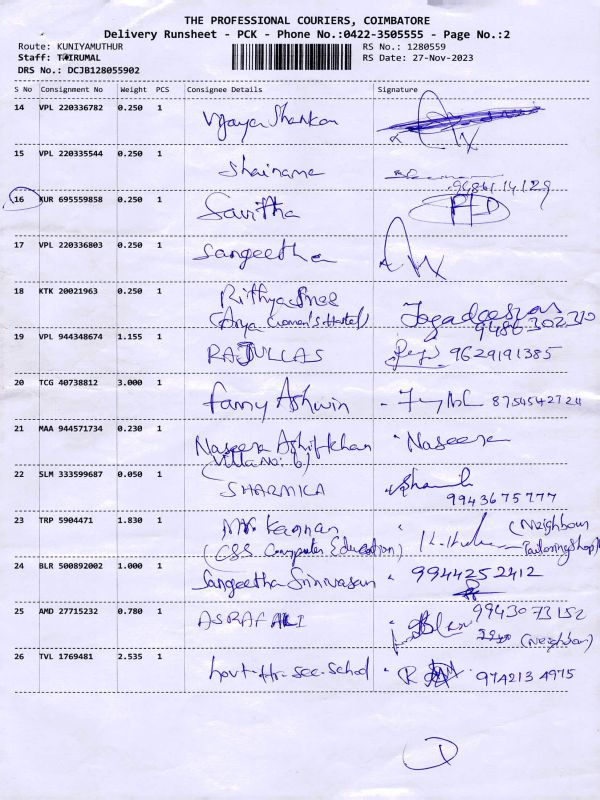 THE PROFESSIONAL COURIERS, COIMBATORE
Delivery Runsheet - PCK - Phone No.:0422-3505555 - Page No.:2
Route: KUNIYAMUTHUR RS No.: 1280559
Staff: THIRUMAL RS Date: 27-Nov-2023
DRS No.: DCJB128055902
S No Consignment No Weight PCS Consignee Details Signature
14 VPL 220336782 0.250 1 Vijaya Shankar
15 VPL 220335544 0.250 1 Shainama
9486114129
16 KUR 695559858 0.250 1 Savitha
17 VPL 220336803 0.250 1 Sangeetha
18 KTK 20021963 0.250 1 Rithyashree Jagadeeswari
(Arya Women's Hostel) 9486302310
19 VPL 944348674 1.155 1 RAJULLAS 9629191385
20 TCG 40738812 3.000 1 Fanny Ashwin 8754542724
21 MAA 944571734 0.230 1 Naseera Ashifkhan Naseera
(Villa No: 6)
22 SLM 333599687 0.050 1 SHARMICA
9943675777
23 TRP 5904471 1.830 1 Mr. Kannan (Neighbour
(CSS Computer Education) Tailoring Shop)
24 BLR 500892002 1.000 1 Sangeetha Srinivasan 9944252412
25 AMD 27715232 0.780 1 ASRAF ALI 9943073152
(Neighbour)
26 TVL 1769481 2.535 1 Govt-Hr-sec-School 9742134975